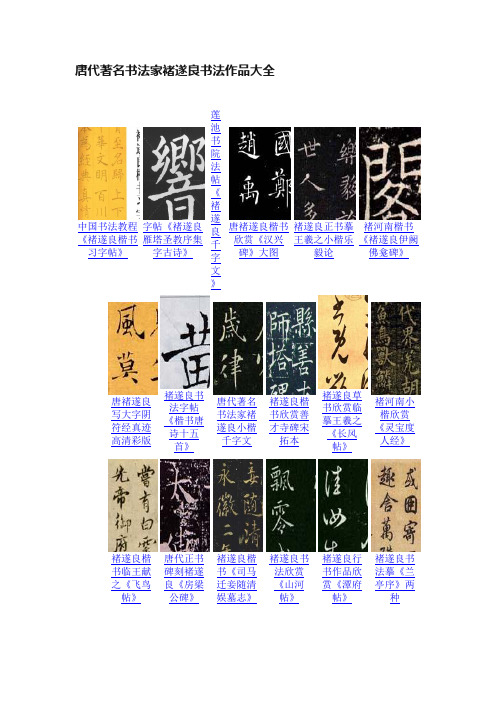 唐代著名书法家褚遂良书法作品大全
響
國鄭
趙禹
樂毅
世人多
中国书法教程
《褚遂良楷书
习字帖》
字帖《褚遂良
雁塔圣教序集
字古诗》
莲
池
书
院
法
帖
《
褚
遂
良
千
字
文
》
唐褚遂良楷书
欣赏《汉兴
碑》大图
褚遂良正书摹
王羲之小楷乐
毅论
褚河南楷书
《褚遂良伊阙
佛龛碑》
風莫
歲律
縣善
師塔碑
唐褚遂良
写大字阴
符经真迹
高清彩版
褚遂良书
法字帖
《楷书唐
诗十五
首》
唐代著名
书法家褚
遂良小楷
千字文
褚遂良楷
书欣赏善
才寺碑宋
拓本
褚遂良草
书欣赏临
摹王羲之
《长风
帖》
褚河南小
楷欣赏
《灵宝度
人经》
嘗有白雲
先帝御府
太
妾隨清
永徽二
飄零
或因寄
趣舍萬殊
褚遂良楷
书临王献
之《飞鸟
帖》
唐代正书
碑刻褚遂
良《房梁
公碑》
褚遂良楷
书《司马
迁妾随清
娱墓志》
褚遂良书
法欣赏
《山河
帖》
褚遂良行
书作品欣
赏《潭府
帖》
褚遂良书
法摹《兰
亭序》两
种